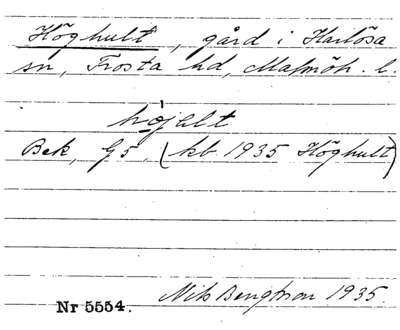 Höghult, gård i Harlösa
sn, Frosta hd, Malmöh. l.
höjelt
Bek, G5, (kb 1935 Höghult)
Nils Bengtson 1935.
Nr 5554.